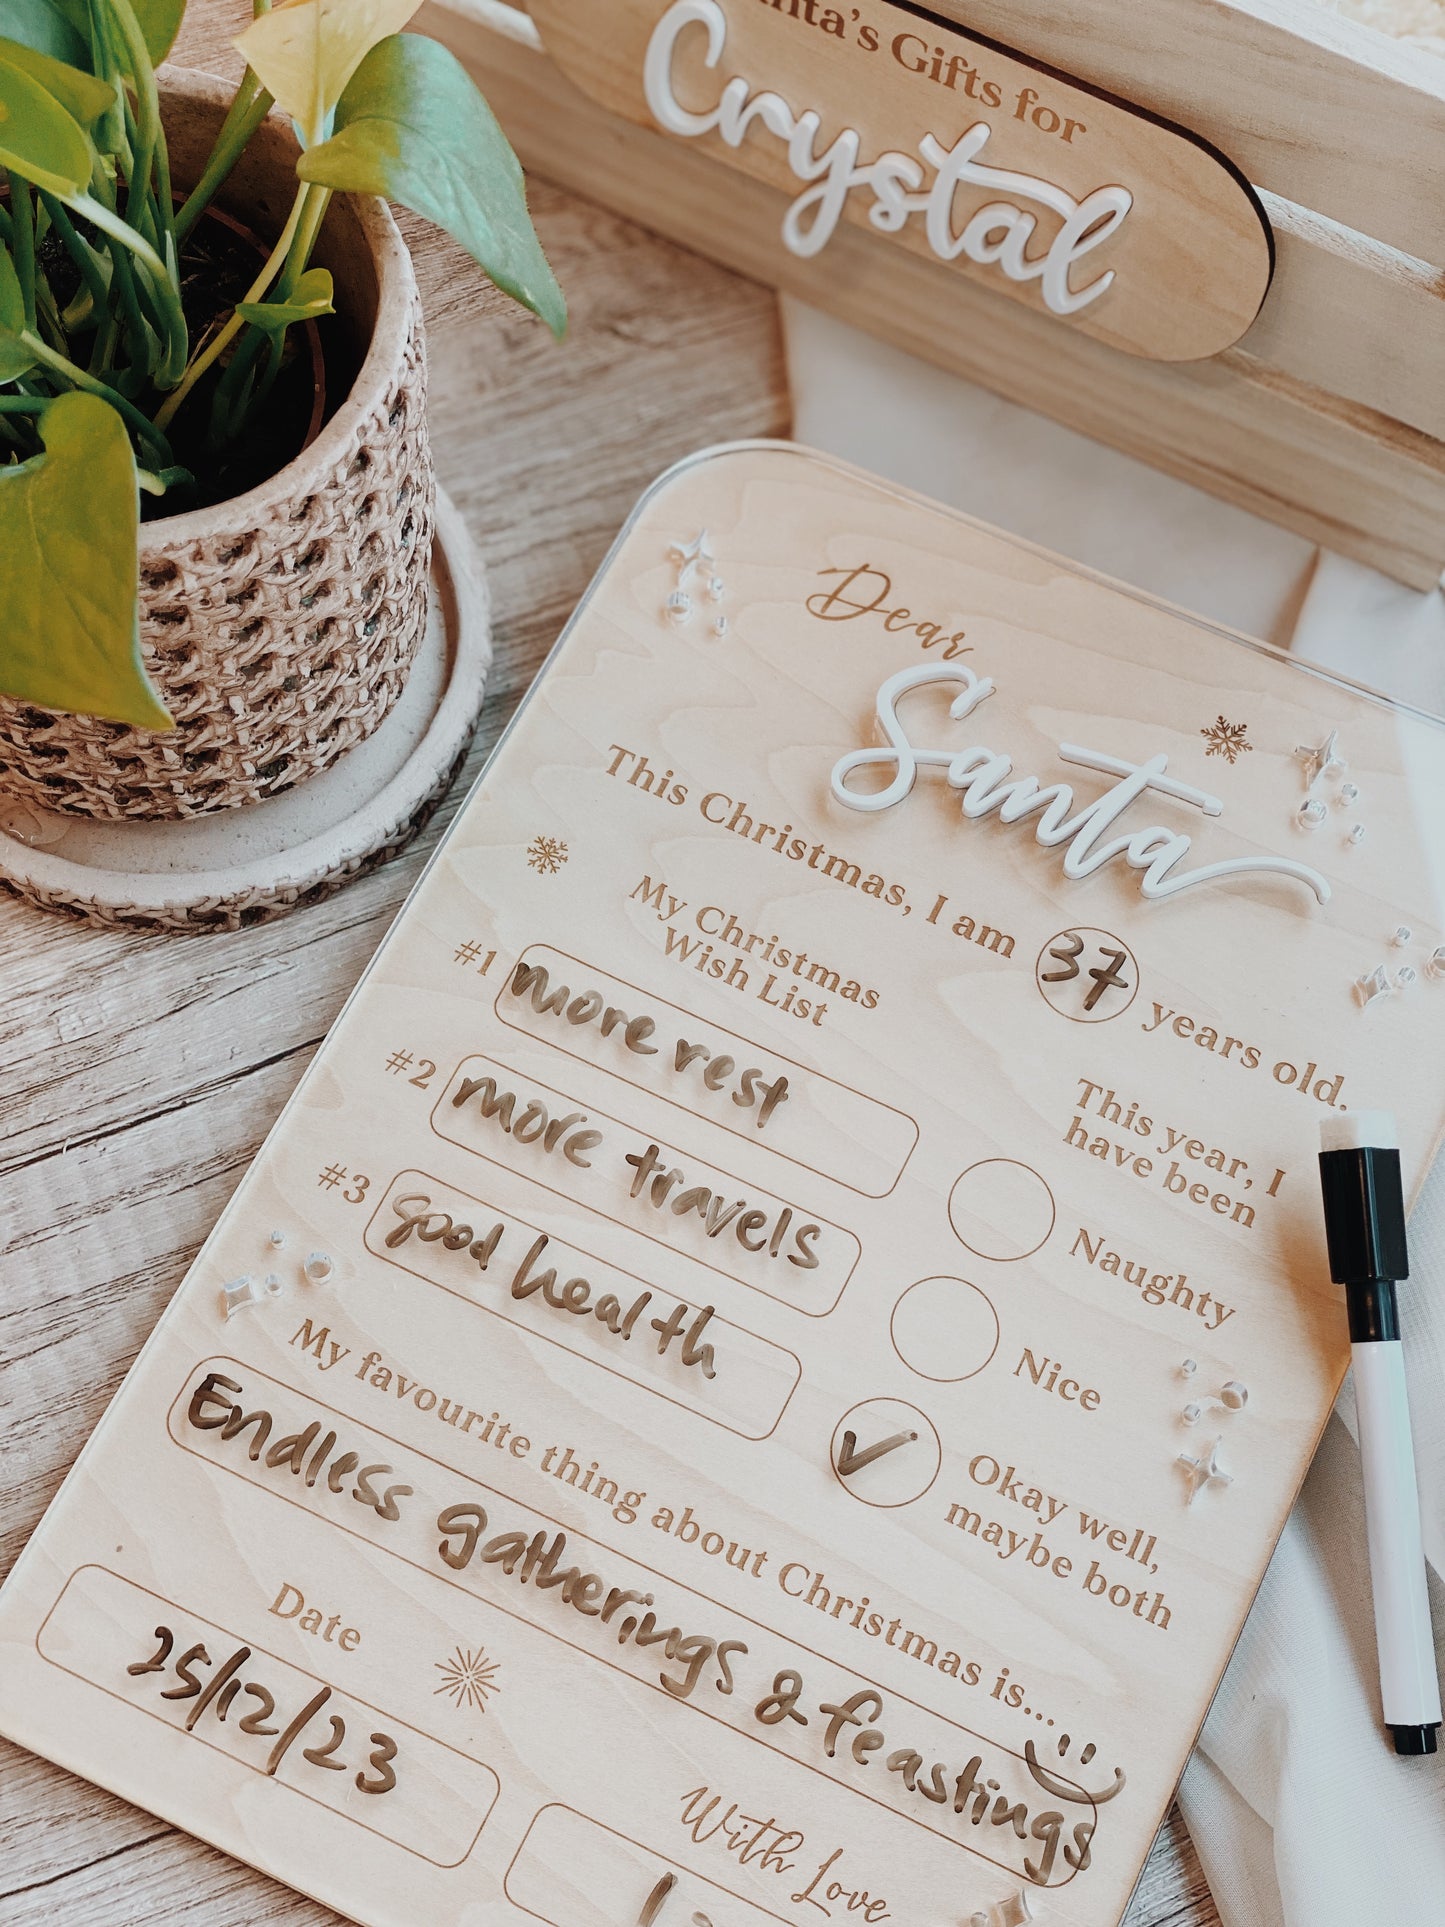 Santa's Gifts for
Crystal
Dear
Santa
This Christmas, I am 37 years old.
My Christmas
Wish List
#1 more rest
#2 more travels
#3 good health
This year, I
have been
Naughty
Nice
✓ Okay well,
maybe both
My favourite thing about Christmas is...
Endless gatherings & feastings
Date
25/12/23
With Love